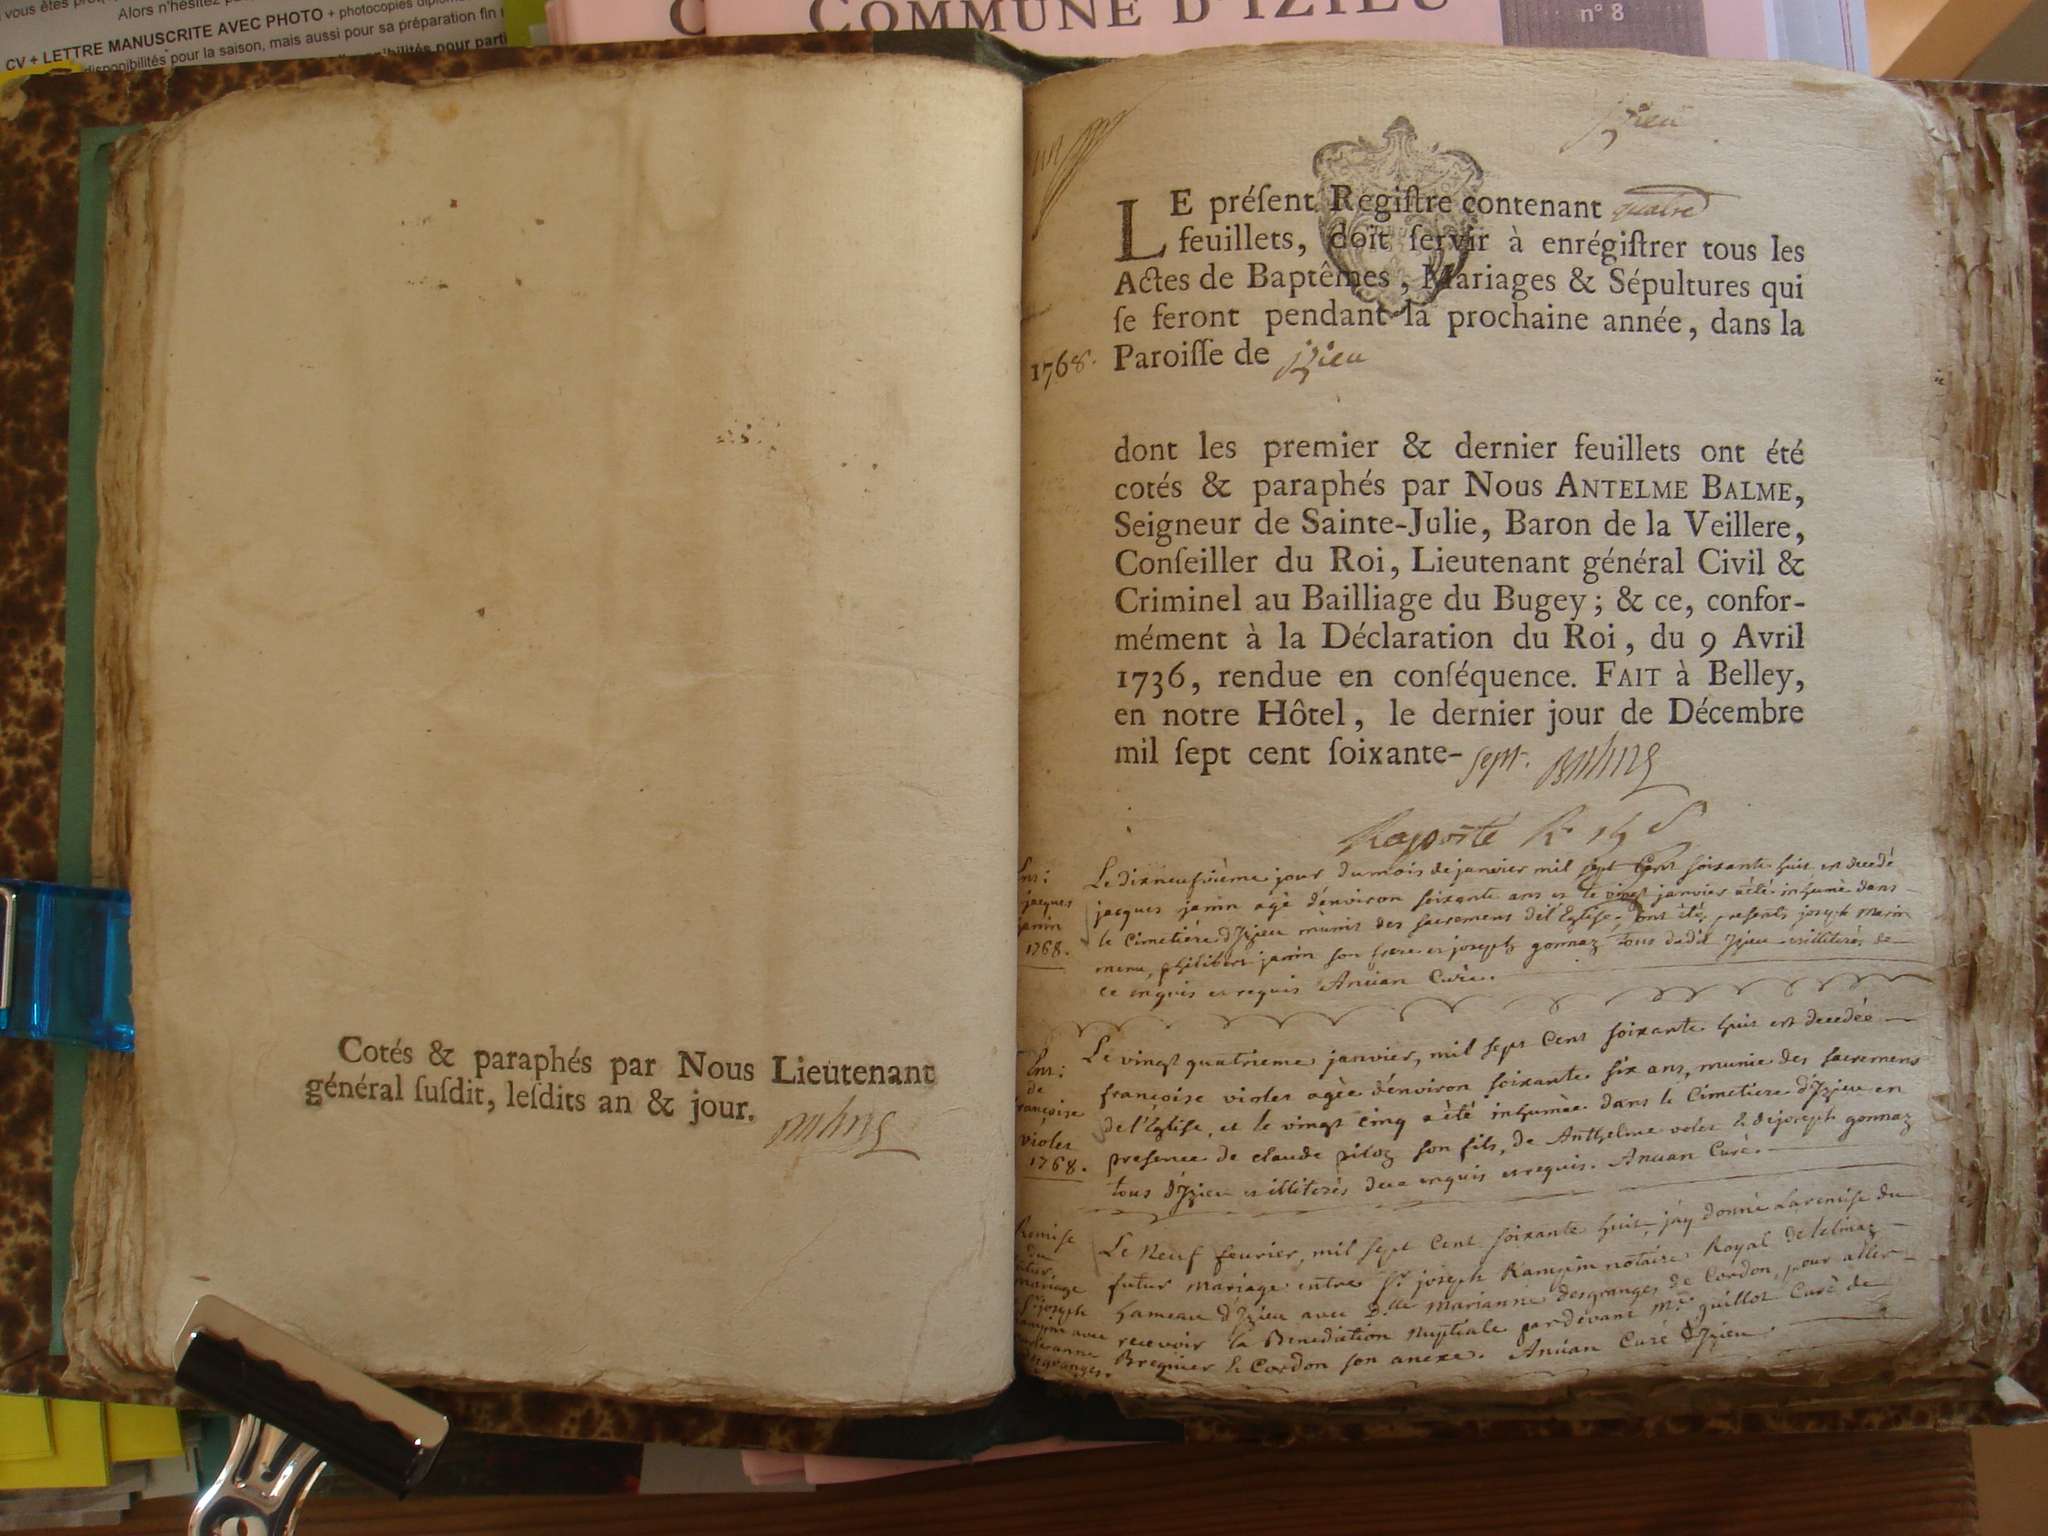 vous êtes
Alors n'hésitez
CV + LETTRE MANUSCRITE AVEC PHOTO + photocopies
disponibilités pour la saison, mais aussi pour sa préparation fin
COMMUNE D'IZIEU
n° 8
Cotés & paraphés par Nous Lieutenant
général ſuſdit, leſdits an & jour.
Izieu
LE préſent Regiſtre contenant quatre
feuillets, doit ſervir à enrégiſtrer tous les
Actes de Baptêmes, Mariages & Sépultures qui
ſe feront pendant la prochaine année, dans la
1768. Paroiſſe de Izieu
dont les premier & dernier feuillets ont été
cotés & paraphés par Nous ANTELME BALME,
Seigneur de Sainte-Julie, Baron de la Veillere,
Conſeiller du Roi, Lieutenant général Civil &
Criminel au Bailliage du Bugey; & ce, confor-
mément à la Déclaration du Roi, du 9 Avril
1736, rendue en conſéquence. FAIT à Belley,
en notre Hôtel, le dernier jour de Décembre
mil ſept cent ſoixante-sept. Balme
Raporté
jacques
janin
1768.
Le dixneufvième jour du mois de janvier mil sept Cent soixante huit est decedé
jacques janin agé d'environ soixante ans et le vingt janvier a été inhumé dans
le Cimetiére d'Izieu munis des sacremens de l'Eglise, ont étés presents joseph
philibert janin son frere et joseph gonnaz tous dudit Izieu et illiterés de
ce enquis et requis Anuan Curé.
de
françoise
violet
1768.
Le vingt quatrieme janvier, mil sept Cent soixante huit est decedée
françoise violet agée d'environ soixante six ans, munie des sacremens
de l'Eglise, et le vingt cinq a été inhumée dans le Cimetiere d'Izieu en
presence de claude pitoz son fils, de Anthelme & de joseph gonnaz
tous d'Izieu et illiterés de ce enquis et requis. Anuan Curé.
Remise
du
futur
mariage
Sr joseph
avec
marianne
desgranges.
Le Neuf fevrier, mil sept Cent soixante huit, j'ay donné La remise du
futur Mariage entre Sr joseph notaire Royal de
hameau d'Izieu avec Dlle Marianne desgranges de Cordon, pour aller
recevoir la Benediction Nuptiale pardevant Mre guillot Curé de
Bregnier & Cordon son anexe. Anuan Curé d'Izieu.